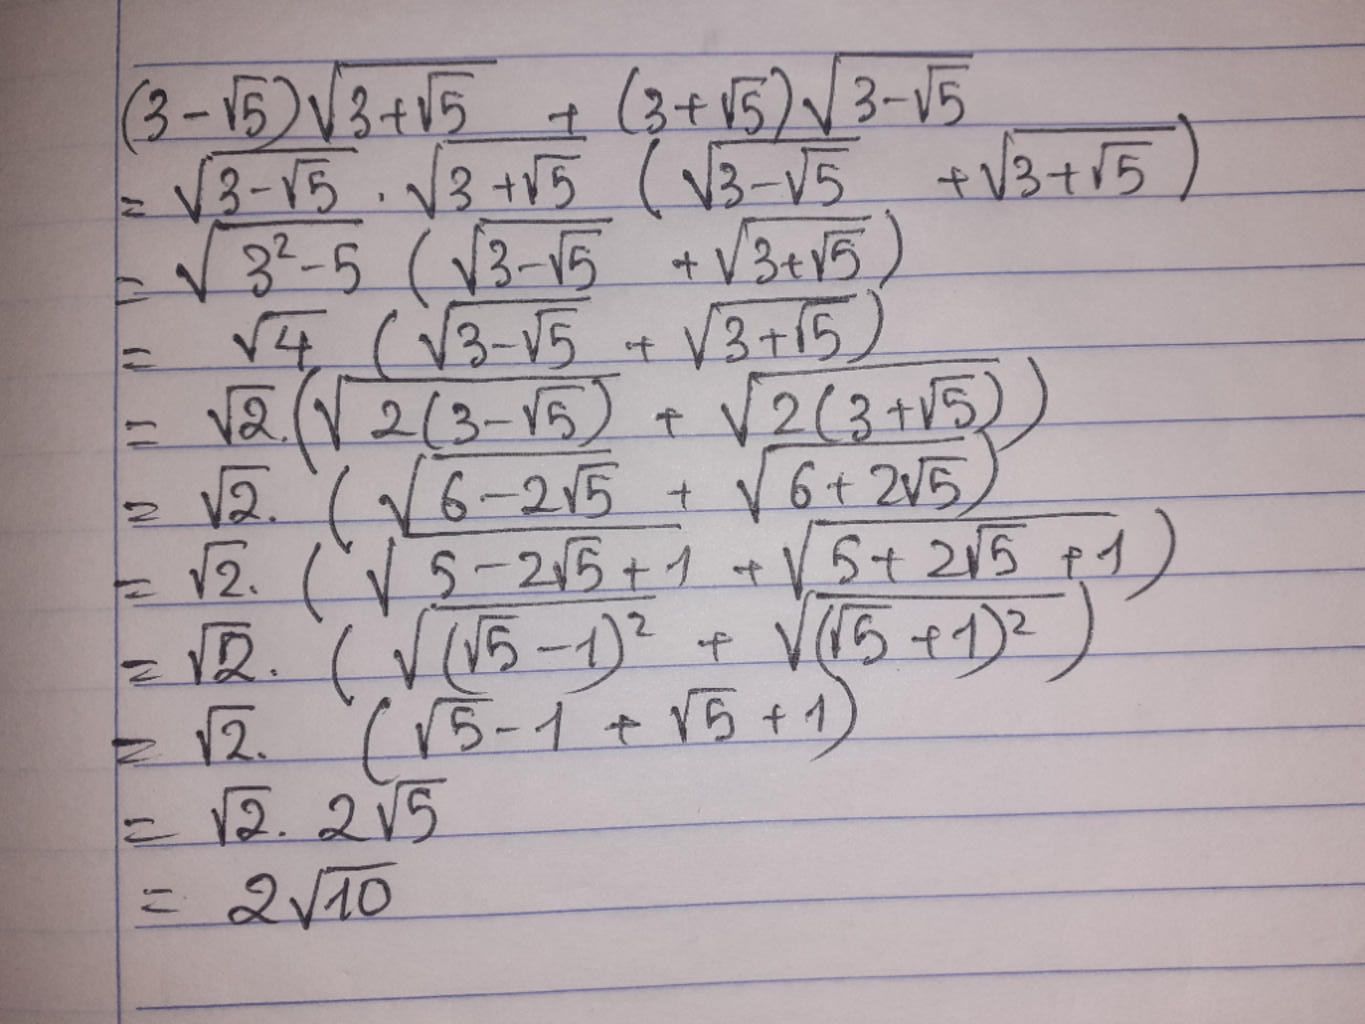 (3-√5)√(3+√5) + (3+√5)√(3-√5)
= √(3-√5) . √(3+√5) (√(3-√5) + √(3+√5))
= √(3²-5) (√(3-√5) + √(3+√5))
= √4 (√(3-√5) + √(3+√5))
= √2.(√(2(3-√5)) + √(2(3+√5)))
= √2. (√(6-2√5) + √(6+2√5))
= √2. (√(5-2√5+1) + √(5+2√5+1))
= √2. (√((√5-1)²) + √((√5+1)²))
= √2. (√5-1 + √5+1)
= √2. 2√5
= 2√10